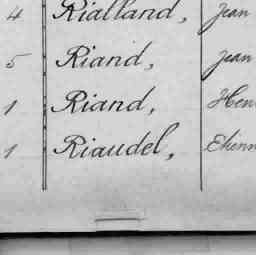 4 Rialland, Jean
5 Riand, Jean
1 Riand, Hen
1 Riaudel, Etienn